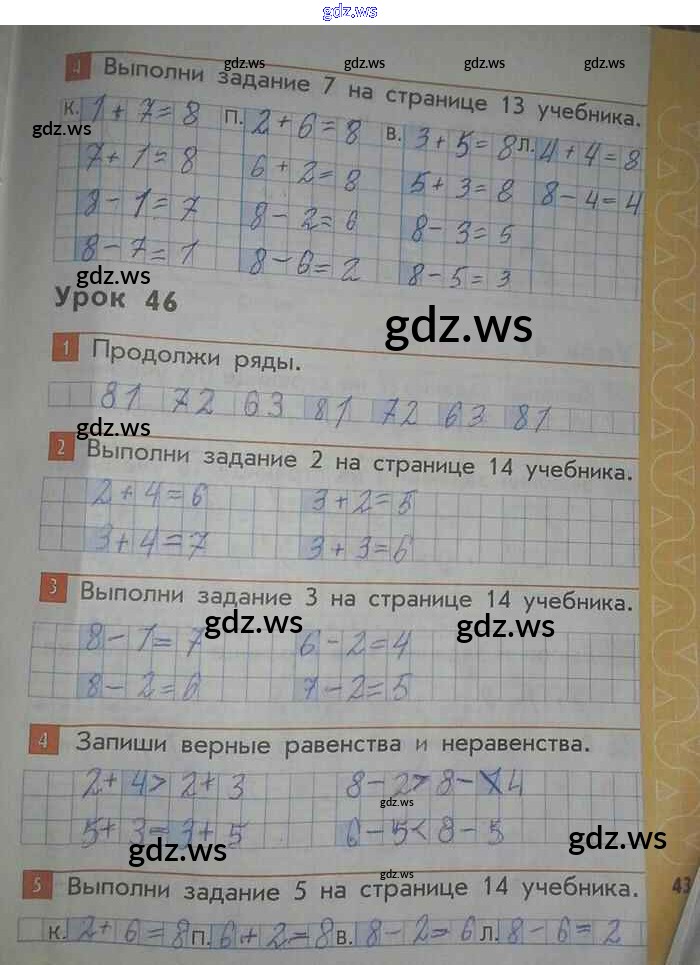 gdz.ws
4 Выполни задание 7 на странице 13 учебника.
gdz.ws gdz.ws gdz.ws
к. 1+7=8 п. 2+6=8 в. 3+5=8 л. 4+4=8
gdz.ws
7+1=8 6+2=8 5+3=8 8-4=4
8-1=7 8-2=6 8-3=5
8-7=1 8-6=2 8-5=3
gdz.ws
Урок 46
gdz.ws
1 Продолжи ряды.
81 72 63 81 72 63 81
gdz.ws
2 Выполни задание 2 на странице 14 учебника.
2+4=6 3+2=5
3+4=7 3+3=6
3 Выполни задание 3 на странице 14 учебника.
gdz.ws gdz.ws
8-1=7 6-2=4
8-2=6 7-2=5
4 Запиши верные равенства и неравенства.
2+4>2+3 8-2>8-4
gdz.ws
5+3=3+5 6-5<8-5
gdz.ws gdz.ws
gdz.ws
5 Выполни задание 5 на странице 14 учебника.
43
к. 2+6=8 п. 6+2=8 в. 8-2=6 л. 8-6=2
gdz.ws